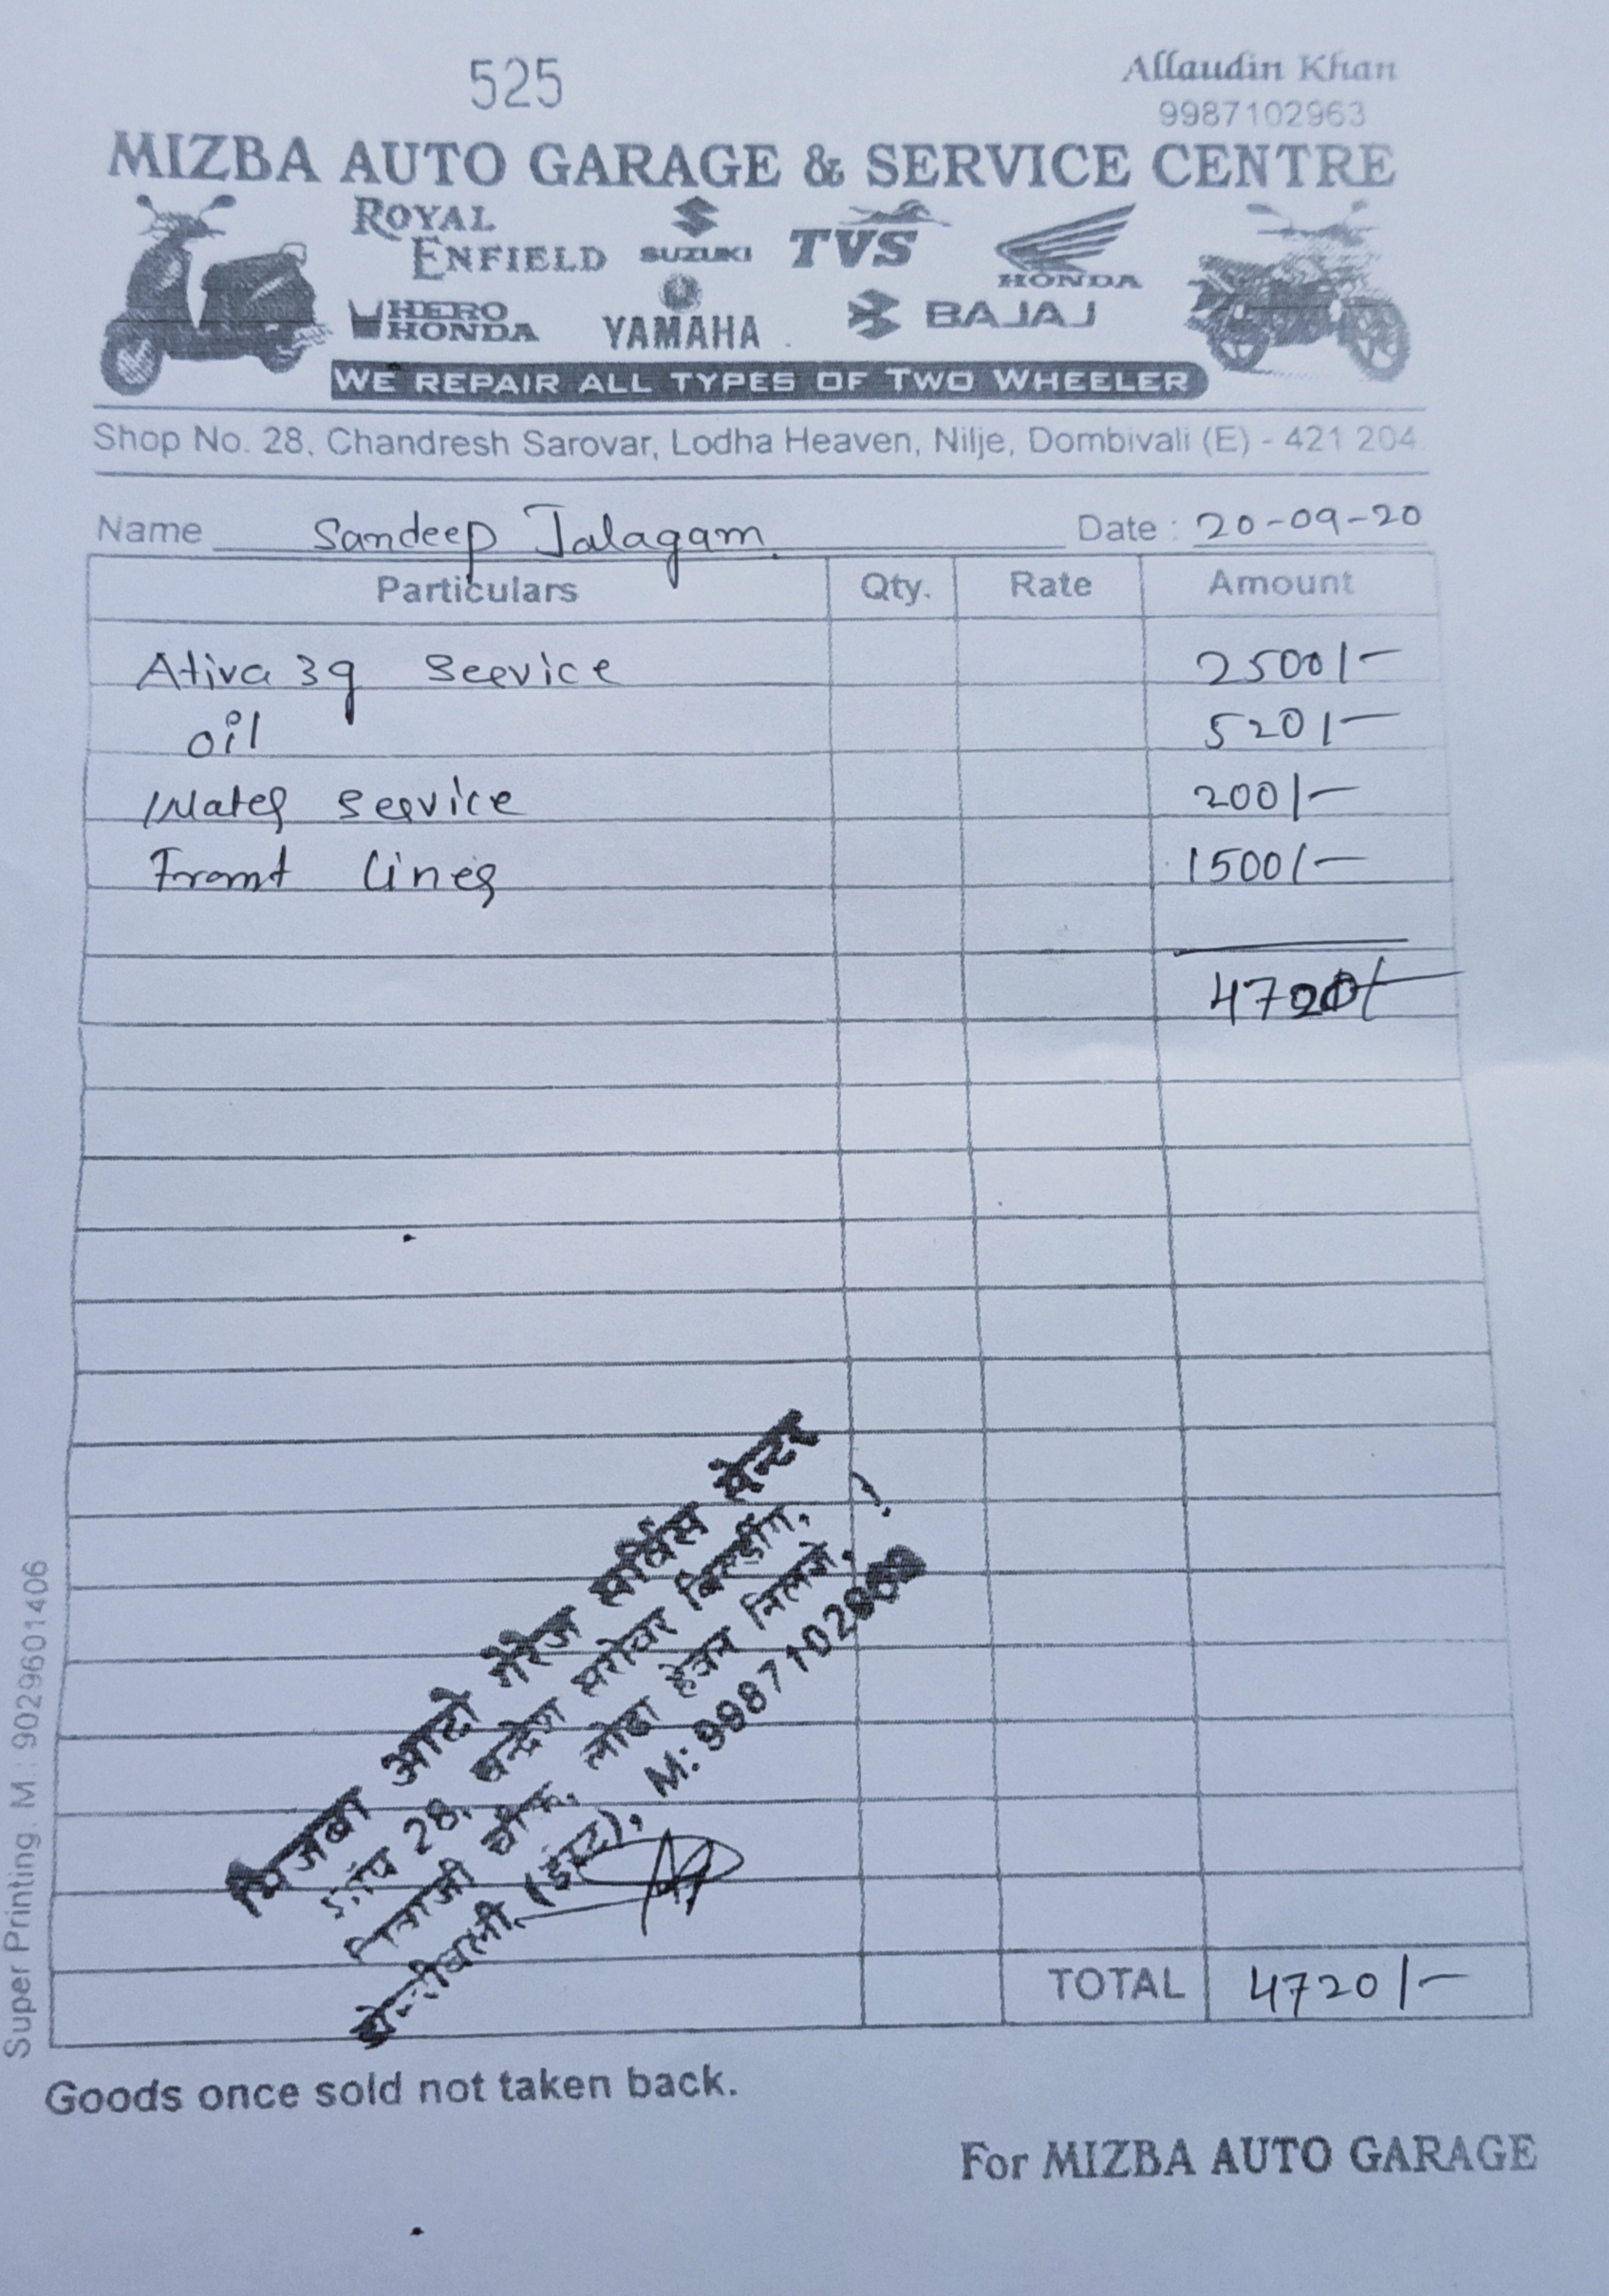 525
Allaudin Khan
9987102963
MIZBA AUTO GARAGE & SERVICE CENTRE
ROYAL ENFIELD
SUZUKI
TVS
HONDA
HERO HONDA
YAMAHA
BAJAJ
WE REPAIR ALL TYPES OF TWO WHEELER
Shop No. 28, Chandresh Sarovar, Lodha Heaven, Nilje, Dombivali (E) - 421 204
Name Sandeep Jalagam Date : 20-09-20
Particulars Qty. Rate Amount
Ativa 3g Seevice 2500/-
oil 520/-
Water service 200/-
Front Liner 1500/-
4720/-
मिजबा आटो गॅरेज सर्विस सेन्टर
शॉप 28, चन्द्रेश सरोवर बिल्डींग,
शिवाजी चौक, लोढा हेवन निलजे,
डोंबीवली (ईस्ट), M: 9987102963
TOTAL 4720/-
Goods once sold not taken back.
For MIZBA AUTO GARAGE
Super Printing. M.: 9029601406